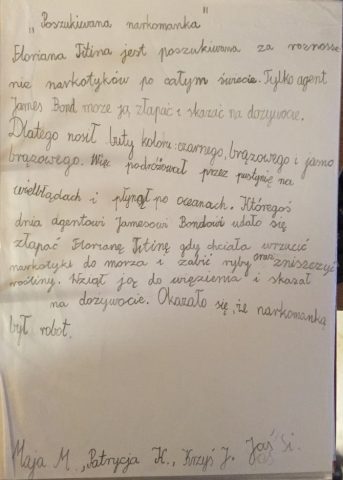 „Poszukiwana narkomanka"
Floriana Titina jest poszukiwana za roznosze
nie narkotyków po całym świecie. Tylko agent
James Bond może ją złapać i skazić na dożywocie.
Dlatego nosił buty koloru: czarnego, brązowego i jasno
brązowego. Więc podróżował przez pustynię na
wielbłądach i płynął po oceanach. Któregoś
dnia agentowi Jamesowi Bondowi udało się
złapać Florianę Titinę gdy chciała wrzucić
narkotyki do morza i zabić ryby oraz zniszczyć
rośliny. Wziął ją do więzienia i skazał
na dożywocie. Okazało się, że narkomanką
był robot.
Maja M., Patrycja K., Krzyś J. Jaś Si.